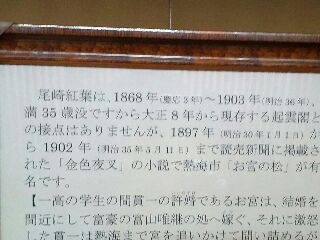 尾崎紅葉は、1868年(慶応3年)～1903年(明治36年)、
満35歳没ですから大正8年から現存する起雲閣と
の接点はありませんが、1897年(明治30年1月1日)か
ら1902年(明治35年5月11日)まで読売新聞に掲載さ
れた「金色夜叉」の小説で熱海市「お宮の松」が有
名です。
【一高の学生の間貫一の許婚であるお宮は、結婚を
間近にして富豪の富山唯継の処へ嫁ぐ、それに激怒
した貫一は熱海まで宮を追いかけて問い詰めるが、